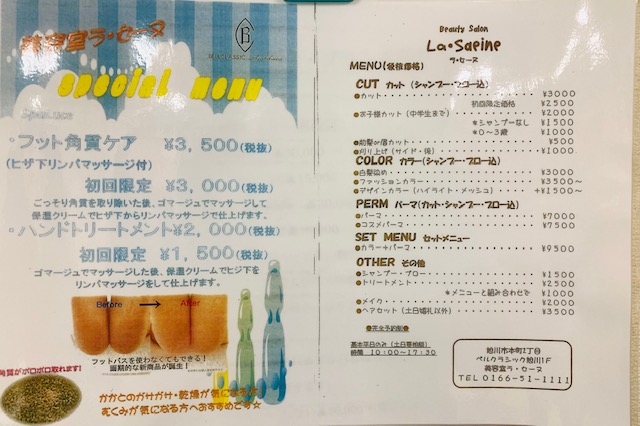 美容室ラ・セーヌ
BELLCLASSIC
special menu
・フット角質ケア ¥3,500(税抜)
(ヒザ下リンパマッサージ付)
初回限定 ¥3,000(税抜)
ごっそり角質を取り除いた後、ゴマージュでマッサージして
保湿クリームでヒザ下からリンパマッサージで仕上げます。
・ハンドトリートメント¥2,000(税抜)
初回限定 ¥1,500(税抜)
ゴマージュでマッサージした後、保湿クリームでヒジ下を
リンパマッサージをして仕上げます。
Before → After
フットバスを使わなくてもできる!
画期的な新商品が誕生!
角質がポロポロ取れます!
かかとのがけがけ・乾燥が気になる
むくみが気になる方へおすすめです☆
Beauty Salon
La・Saeine
ラ・セーヌ
MENU(税抜価格)
CUT カット (シャンプー・ブロー込)
●カット ¥3000
初回限定価格 ¥2500
●お子様カット (中学生まで) ¥2000
*シャンプーなし ¥1500
*0〜3歳 ¥1000
●前髪の眉カット ¥500
●刈り上げ (サイド・後) ¥1000
COLOR カラー (シャンプー・ブロー込)
●白髪染め ¥3000
●ファッションカラー ¥3500〜
●デザインカラー (ハイライト・メッシュ) +¥1500〜
PERM パーマ (カット・シャンプー・ブロー込)
●パーマ ¥7000
●コスメパーマ ¥7500
SET MENU セットメニュー
●カラー+パーマ ¥9500
OTHER その他
●シャンプー・ブロー ¥1500
●トリートメント ¥2500
*メニューと組み合わせで ¥1000
●メイク ¥2000
●ヘアセット (土日婚礼以外) ¥3500
●完全予約制●
基本平日のみ (土日要相談)
時間 10:00〜17:30
旭川市本町1丁目
ベルクラシック旭川1F
美容室ラ・セーヌ
TEL0166-51-1111